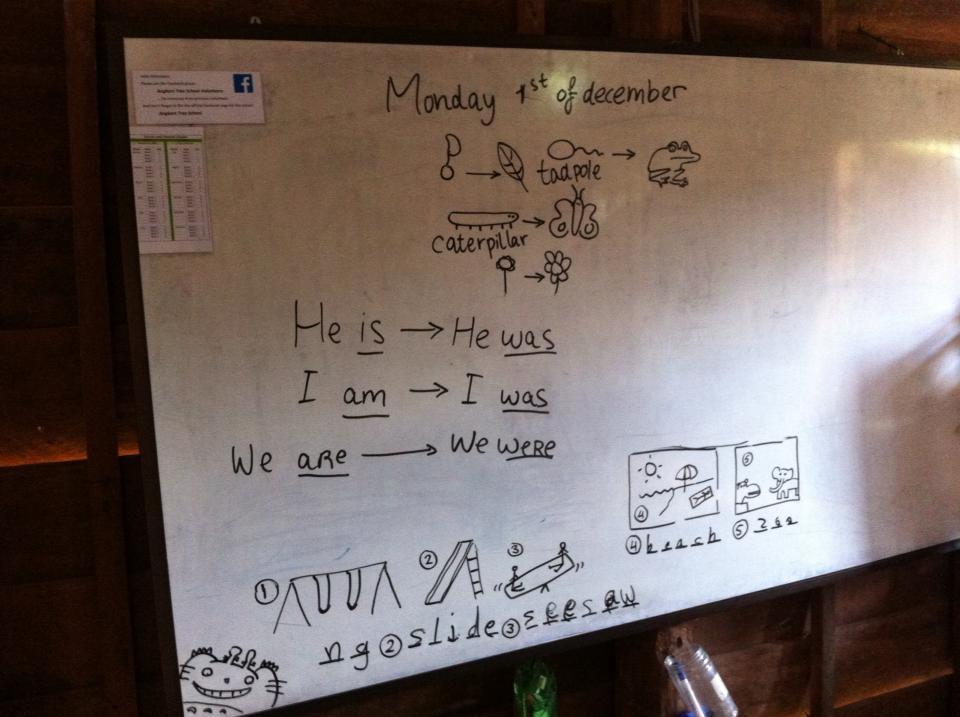 Angkor Tree School Volunteers
Angkor Tree School
f
Monday 1st of december
tadpole
caterpillar
He is → He was
I am → I was
We are → We were
④ ⑤
④ beach ⑤ zoo
① ② ③
ng ② slide ③ seesaw